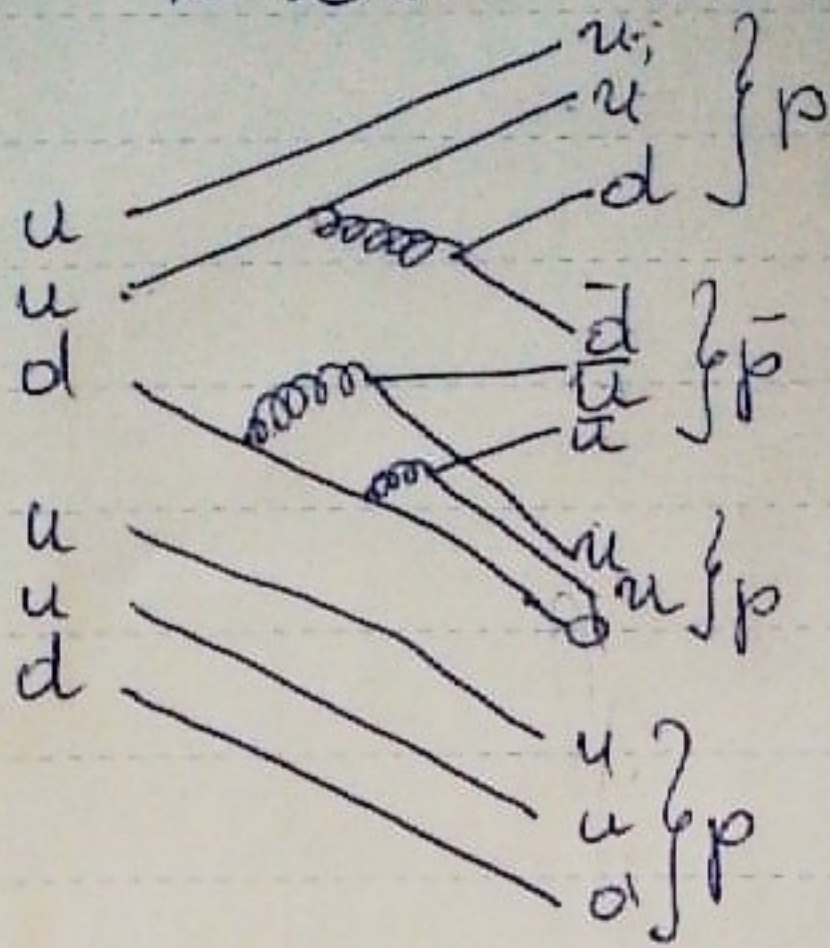 u
u
d
u
u
d
u
u
d
} p
d̄
ū
ū
} p̄
u
u
d
} p
u
u
d
} p